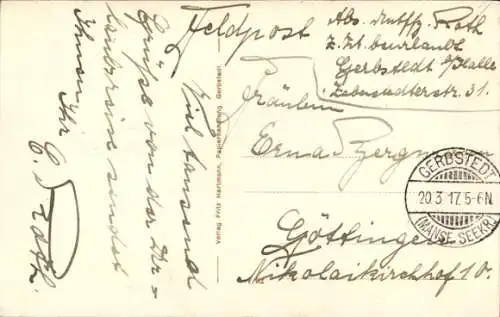 Feldpost
Abs. Untffz. Roth
z. Zt. beurlaubt
Gerbstedt b/Halle
Zabenstedterstr. 31.
Fräulein
Erna Bergmann
Göttingen
Nikolaikirchhof 10.
Viel tausend
Grüße von der
sendet
Ihnen Ihr
E. Roth
Verlag Fritz Hartmann, Papierhandlung, Gerbstedt.
GERBSTEDT
20.3.17.5-6N
(MANSF. SEEKR.)